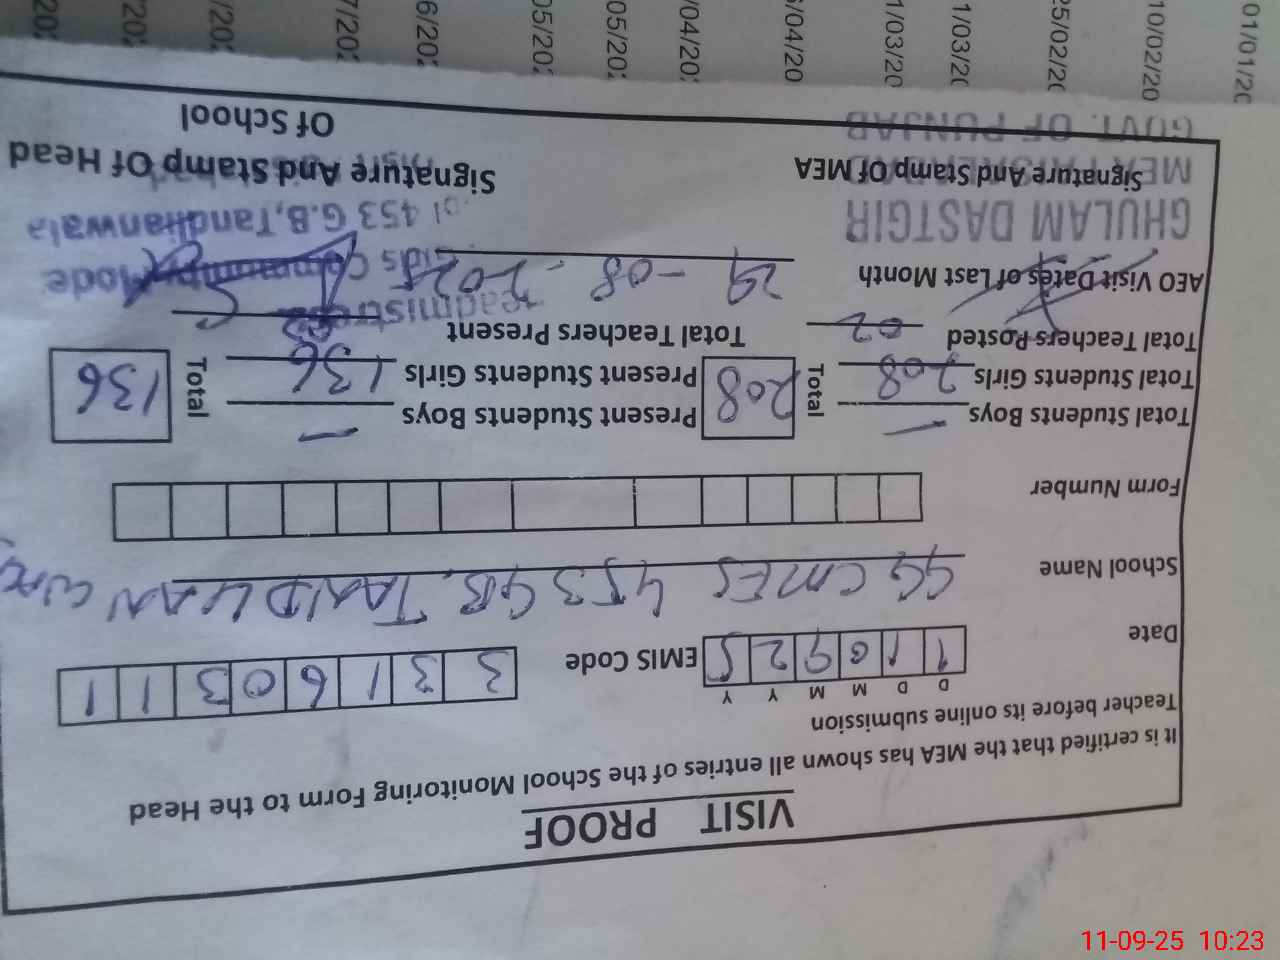 VISIT PROOF
It is certified that the MEA has shown all entries of the School Monitoring Form to the Head
Teacher before its online submission
D D M M Y Y
Date 1 1 0 9 2 5 EMIS Code 3 3 1 6 0 3 1 1
School Name GG CMES 453 GB, TANDLIAN WALA
Form Number
Total Students Boys – Total 208 Present Students Boys – Total 136
Total Students Girls 208 Present Students Girls 136
Total Teachers Posted 02 Total Teachers Present 02
AEO Visit Dates of Last Month 29-08-2025
Headmistress
Girls Community Mode
453 G.B, Tandlianwala
GHULAM DASTGIR
MEA FAISALABAD
GOVT. OF PUNJAB
Signature And Stamp Of MEA
Signature And Stamp Of Head
Of School
01/01/20
10/02/20
25/02/20
1/03/20
1/03/20
/04/20
/04/20
05/20
05/20
6/20
7/20
/20
20
20
11-09-25 10:23